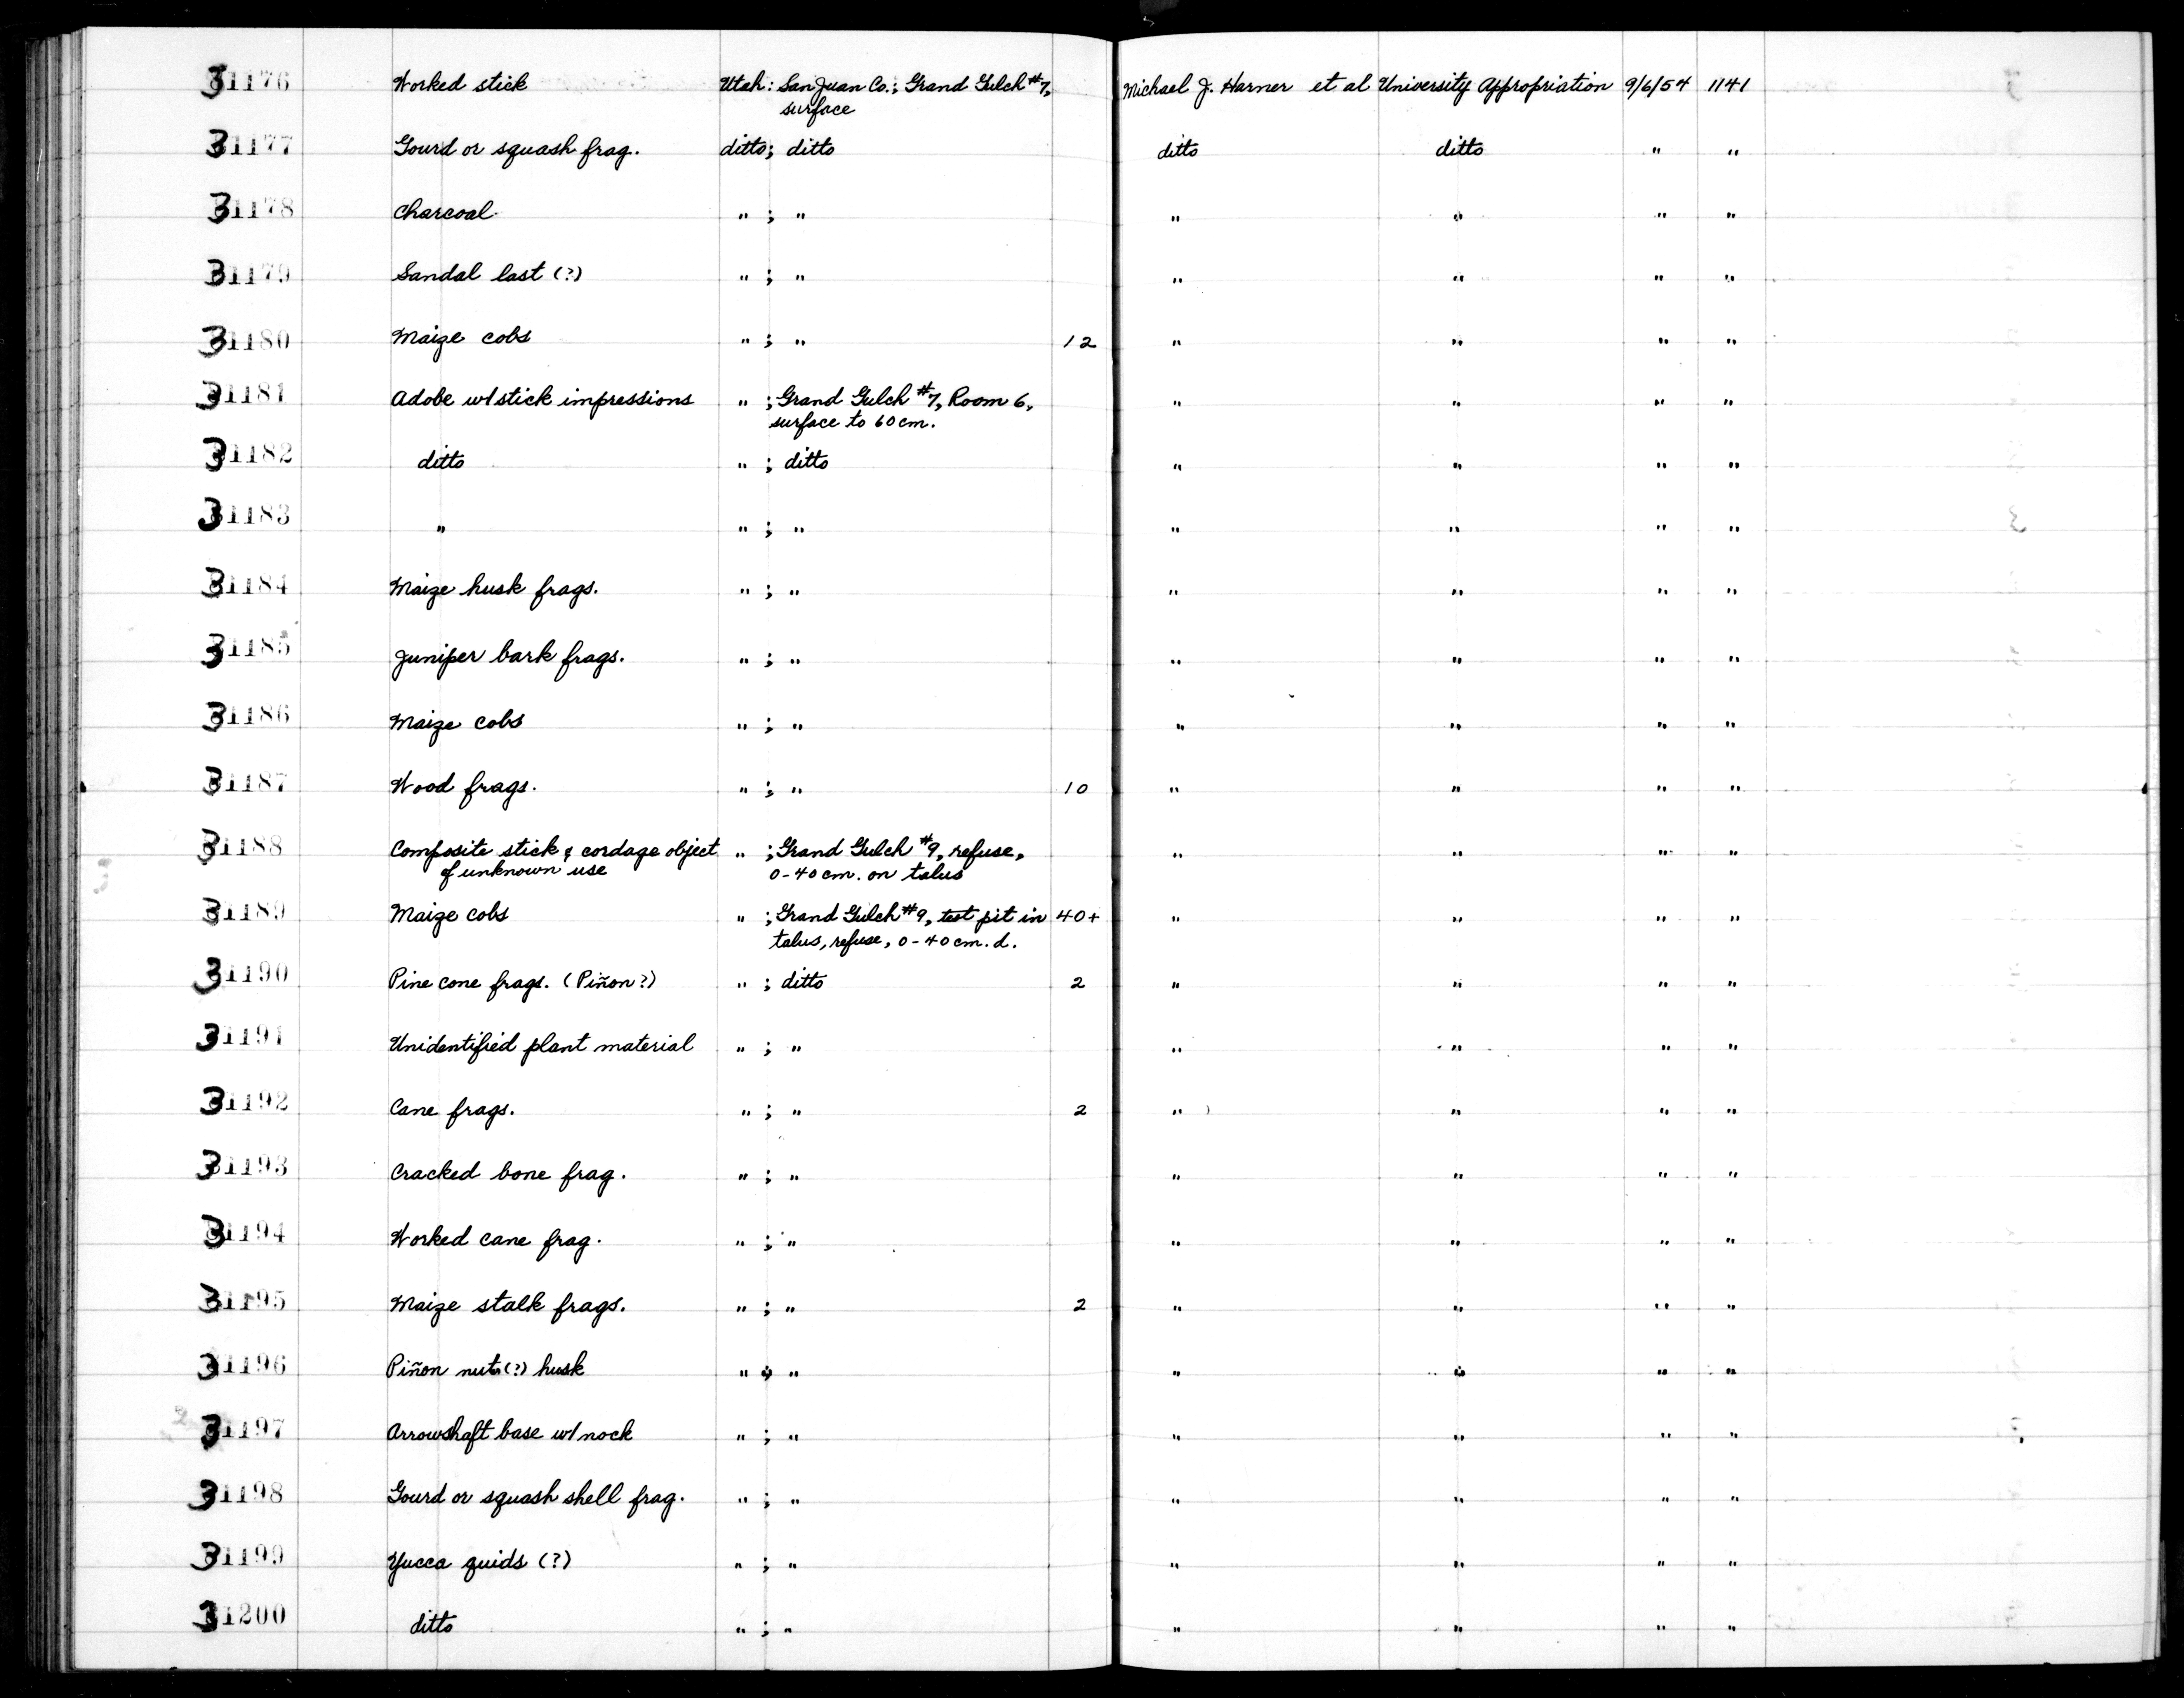 31176 Worked stick Utah: San Juan Co.; Grand Gulch #7, Michael J. Harner et al University Appropriation 9/6/54 1141
surface
31177 Gourd or squash frag. ditto; ditto ditto ditto " "
31178 Charcoal " ; " " " " "
31179 Sandal last (?) " ; " " " " "
31180 Maize cobs " ; " 12 " " " "
31181 Adobe w/stick impressions " ; Grand Gulch #7, Room 6, " " " "
surface to 60 cm.
31182 ditto " ; ditto " " " "
31183 " " ; " " " " "
31184 Maize husk frags. " ; " " " " "
31185 Juniper bark frags. " ; " " " " "
31186 Maize cobs " ; " " " " "
31187 Wood frags. " ; " 10 " " " "
31188 Composite stick & cordage object " ; Grand Gulch #9, refuse, " " " "
of unknown use 0-40 cm. on talus
31189 Maize cobs " ; Grand Gulch #9, test pit in 40+ " " " "
talus, refuse, 0-40 cm. d.
31190 Pine cone frags. (Piñon?) " ; ditto 2 " " " "
31191 Unidentified plant material " ; " " " " "
31192 Cane frags. " ; " 2 " " " "
31193 Cracked bone frag. " ; " " " " "
31194 Worked cane frag. " ; " " " " "
31195 Maize stalk frags. " ; " 2 " " " "
31196 Piñon nut (?) husk " ; " " " " "
31197 Arrowshaft base w/nock " ; " " " " "
31198 Gourd or squash shell frag. " ; " " " " "
31199 Yucca quids (?) " ; " " " " "
31200 ditto " ; " " " " "